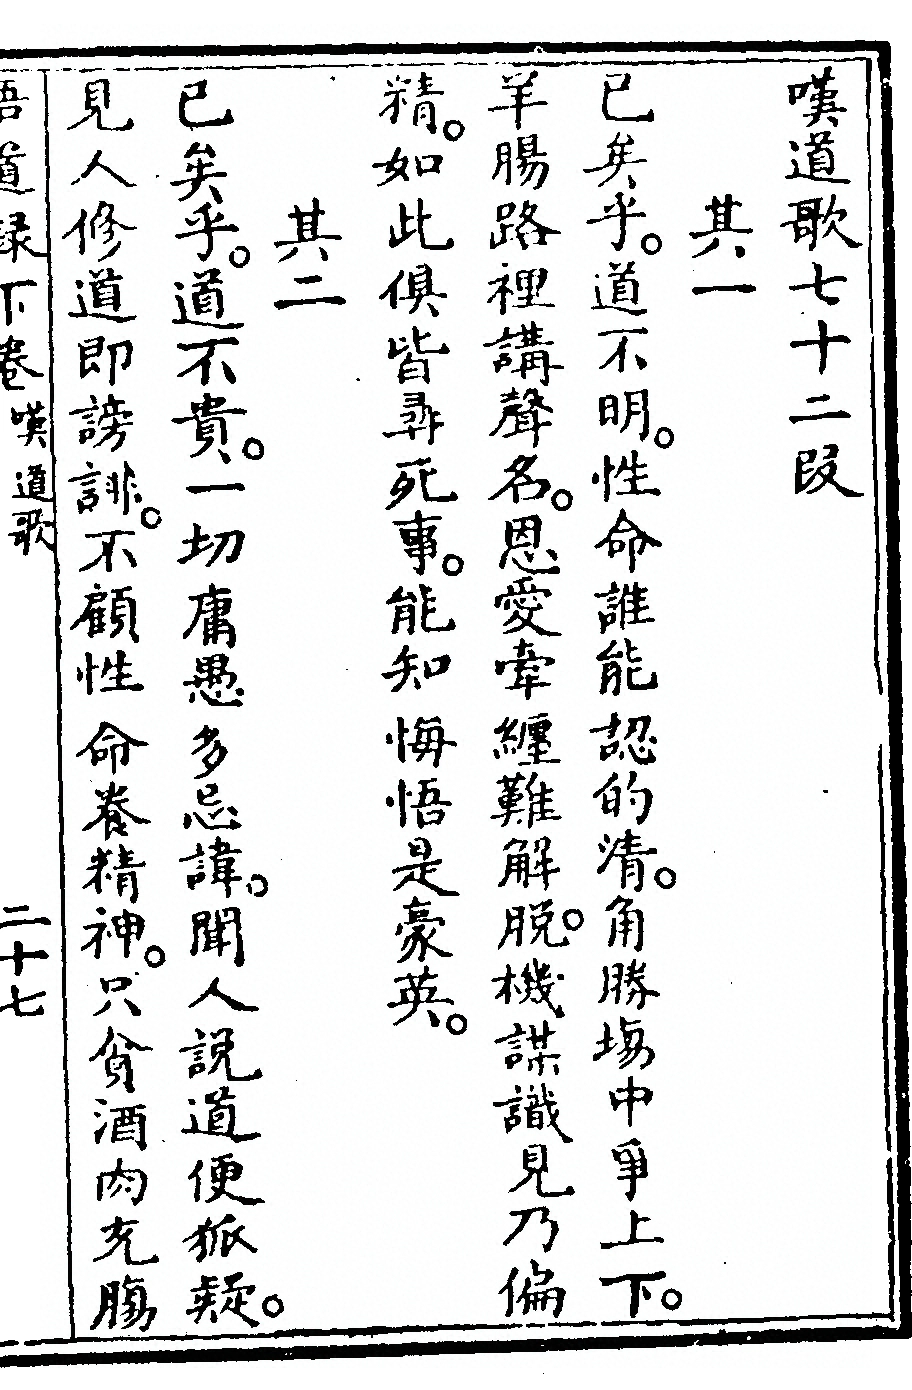 嘆道歌七十二段
其一
已矣乎。道不明。性命誰能認的清。角勝塲中爭上下。
羊腸路裡講聲名。恩愛牽纏難解脫。機謀識見乃偏
精。如此俱皆尋死事。能知悔悟是豪英。
其二
已矣乎。道不貴。一切庸愚多忌諱。聞人說道便狐疑。
見人修道即謗誹。不顧性命養精神。只貪酒肉充腸
悟道録下卷 嘆道歌 二十七